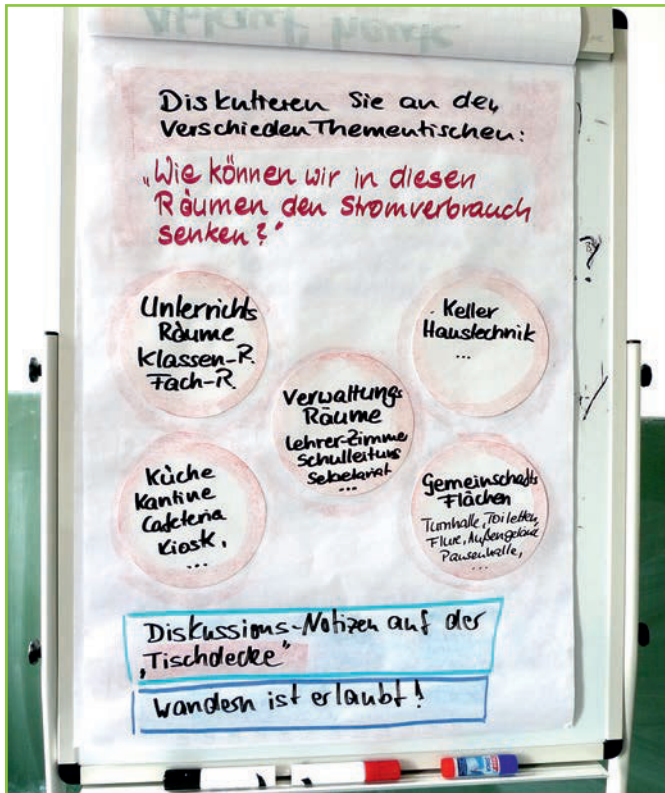 Ablauf heute
Diskutieren Sie an den
verschieden Thementischen:
„Wie können wir in diesen
Räumen den Stromverbrauch
senken?"
Unterrichts
Räume
Klassen-R.
Fach-R.
Keller
Haustechnik
...
Verwaltungs
Räume
Lehrer-Zimmer
Schulleitung
Sekretariat
...
Küche
Kantine
Cafeteria
Kiosk,
...
Gemeinschafts
Flächen
Turnhalle, Toiletten,
Flure, Außengelände
Pausenhalle,
...
Diskussions-Notizen auf der
„Tischdecke"
Wandern ist erlaubt!